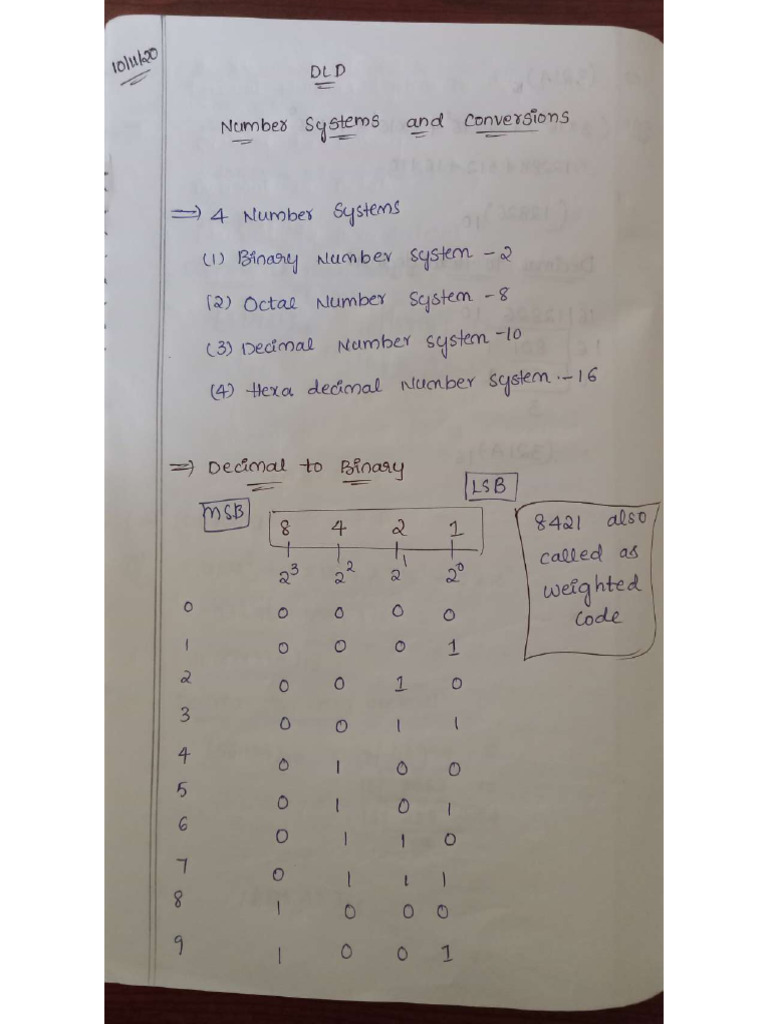 10/11/20
DLD
Number Systems and Conversions
⇒ 4 Number Systems
(1) Binary Number System - 2
(2) Octal Number System - 8
(3) Decimal Number System - 10
(4) Hexa decimal Number System - 16
⇒ Decimal to Binary
MSB LSB
8 4 2 1
2³ 2² 2¹ 2⁰
8421 also
called as
weighted
code
0 0 0 0 0
1 0 0 0 1
2 0 0 1 0
3 0 0 1 1
4 0 1 0 0
5 0 1 0 1
6 0 1 1 0
7 0 1 1 1
8 1 0 0 0
9 1 0 0 1